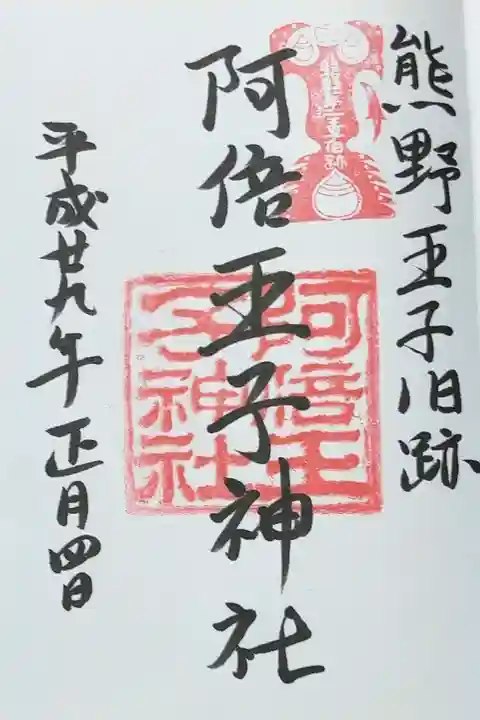 熊野王子旧跡
阿倍王子神社
平成廿九年正月四日
阿倍王
子神社